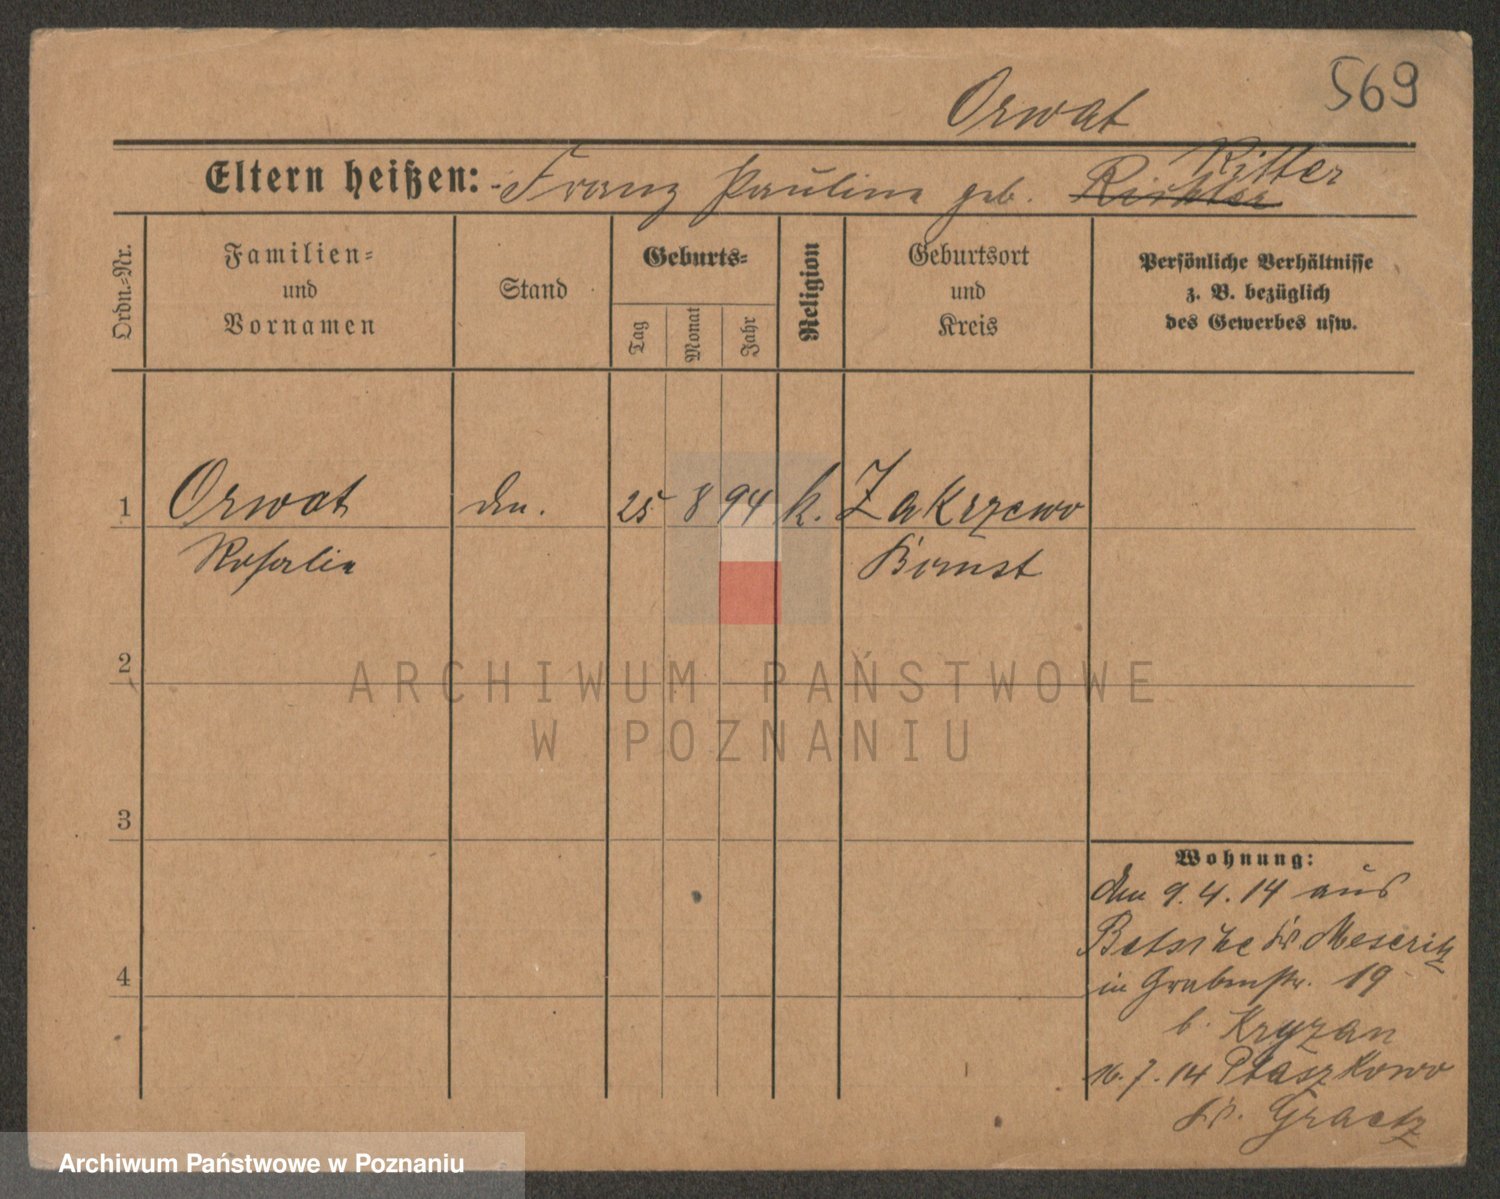 569
Orwat
Eltern heißen: Franz Pauline geb. Richter Ritter
Ordn.-Nr.
Familien-
und
Vornamen
Stand
Geburts-
Tag
Monat
Jahr
Religion
Geburtsort
und
Kreis
Persönliche Verhältnisse
z. B. bezüglich
des Gewerbes usw.
1 Orwat 25 8 94 k. Zakrzewo
Rosalie Bomst
2
ARCHIWUM PAŃSTWOWE
W POZNANIU
3
Wohnung:
den 9.4.14 aus
Betsche Kr Meseritz
4
in Grabenstr. 19
b. Kryzan
16.7.14 Ptaszkowo
Kr. Graetz
Archiwum Państwowe w Poznaniu